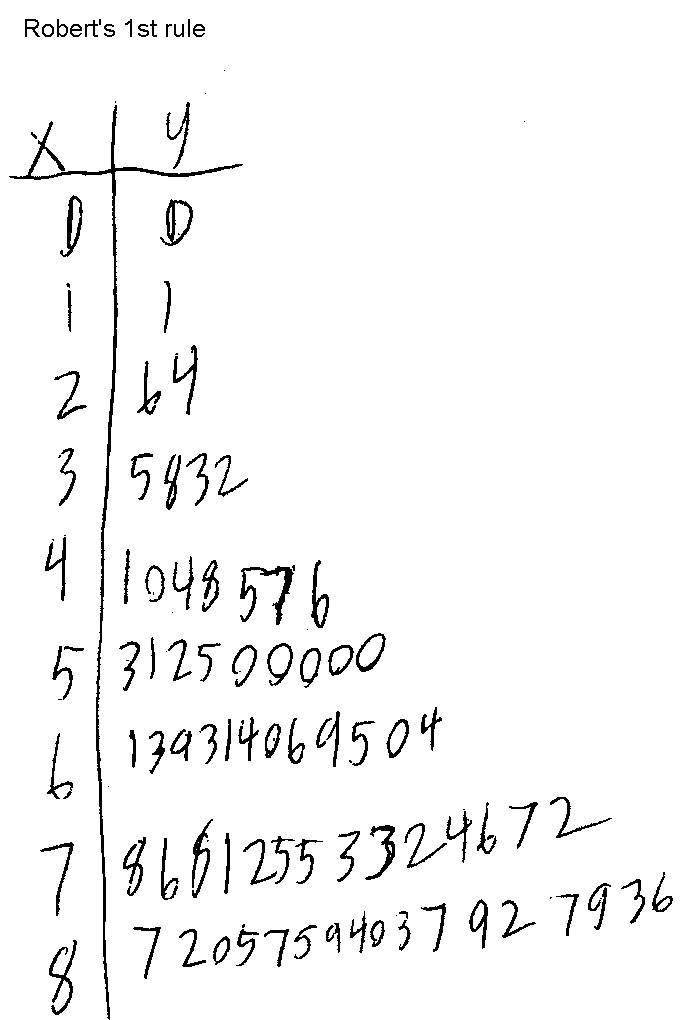 Robert's 1st rule
x y
0 0
1 1
2 64
3 5832
4 1048576
5 312500000
6 139314069504
7 86812553324672
8 72057594037927936